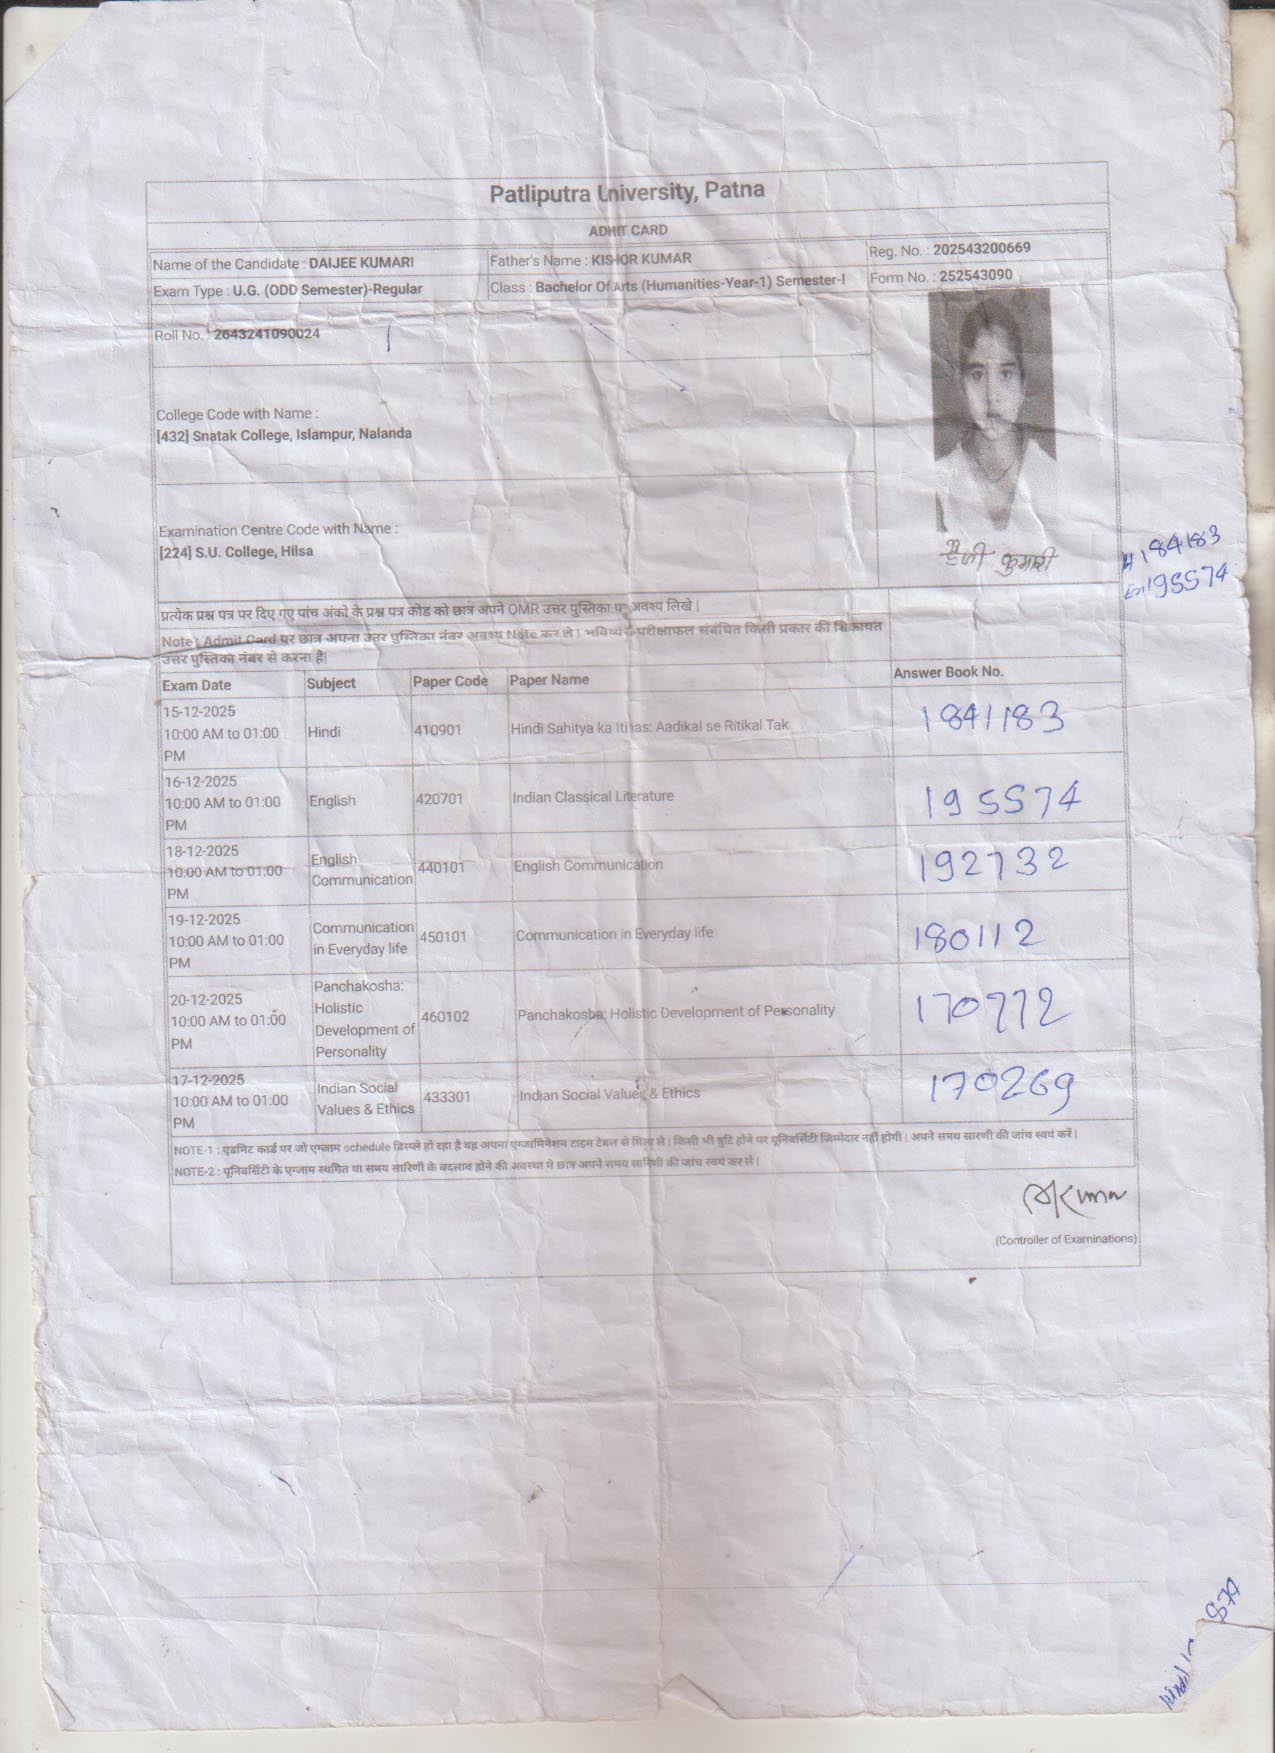 Patliputra University, Patna
ADMIT CARD
Name of the Candidate : DAIJEE KUMARI
Father's Name : KISHOR KUMAR
Reg. No. : 202543200669
Exam Type : U.G. (ODD Semester)-Regular
Class : Bachelor Of Arts (Humanities-Year-1) Semester-I
Form No. : 252543090
Roll No. : 2643241090024
College Code with Name :
[432] Snatak College, Islampur, Nalanda
Examination Centre Code with Name :
[224] S.U. College, Hilsa
कुमारी
184183
195574
प्रत्येक प्रश्न पत्र पर दिए गए पांच अंको के प्रश्न पत्र कोड को छात्र अपने OMR उत्तर पुस्तिका पर अवश्य लिखे |
Note : Admit Card पर छात्र अपना उत्तर पुस्तिका नंबर अवश्य Note कर ले | भविष्य में परीक्षाफल संबंधित किसी प्रकार की शिकायत
उत्तर पुस्तिका नंबर से करना है|
Exam Date Subject Paper Code Paper Name Answer Book No.
15-12-2025
10:00 AM to 01:00 PM
Hindi 410901 Hindi Sahitya ka Itihas: Aadikal se Ritikal Tak 1841183
16-12-2025
10:00 AM to 01:00 PM
English 420701 Indian Classical Literature 195574
18-12-2025
10:00 AM to 01:00 PM
English Communication 440101 English Communication 192732
19-12-2025
10:00 AM to 01:00 PM
Communication in Everyday life 450101 Communication in Everyday life 180112
20-12-2025
10:00 AM to 01:00 PM
Panchakosha: Holistic Development of Personality 460102 Panchakosha: Holistic Development of Personality 170772
17-12-2025
10:00 AM to 01:00 PM
Indian Social Values & Ethics 433301 Indian Social Values & Ethics 170269
NOTE-1 : एडमिट कार्ड पर जो एग्जाम schedule डिस्प्ले हो रहा है वह अपना एग्जामिनेशन टाइम टेबल से मिला ले | किसी भी त्रुटि होने पर यूनिवर्सिटी जिम्मेदार नहीं होगी | अपने समय सारणी की जांच स्वयं करें |
NOTE-2 : यूनिवर्सिटी के एग्जाम स्थगित या समय सारिणी के बदलाव होने की अवस्था मे छात्र अपने समय सारिणी की जांच स्वयं कर ले |
(Controller of Examinations)